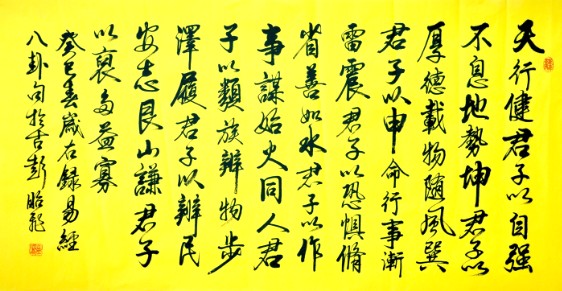 天行健君子以自强
不息地勢坤君子以
厚德載物随風巽
君子以申命行事漸
雷震君子以恐惧脩
省善如水君子以作
事謀始火同人君
子以類族辨物步
澤履君子以辨民
安志艮山謙君子
以裒多益寡
癸巳春歲右録易經
八卦句於古彭昭龍